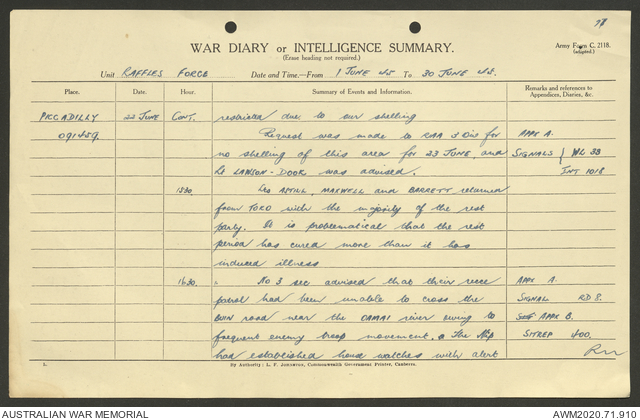 98
WAR DIARY or INTELLIGENCE SUMMARY.
(Erase heading not required.)
Army Form C. 2118.
(adapted.)
Unit RAFFLES FORCE Date and Time.—From 1 JUNE 45 To 30 JUNE 45.
Place. Date. Hour. Summary of Events and Information. Remarks and references to Appendices, Diaries, &c.
PICCADILLY 22 JUNE CONT. restricted due to our shelling
091459. Request was made to RAA 3 DIV for APPX A.
no shelling of this area for 23 JUNE, and SIGNALS WL 38
Lt LAWSON-DOOK was advised. JNT 1018
1530. Lts ASTILL, MAXWELL and BARRETT returned
from TOKO with the majority of the rest
party. It is problematical that the rest
period has cured more than it has
induced illness
1630. No 3 sec advised that their recce APPX A.
patrol had been unable to cross the SIGNAL RD 8.
BUIN road near the OAMAI river owing to APPX B.
frequent enemy troop movement. The Nip SITREP 400.
had established head watches with alert
L. By Authority: L. F. Johnston, Commonwealth Government Printer, Canberra.
AUSTRALIAN WAR MEMORIAL AWM2020.71.910